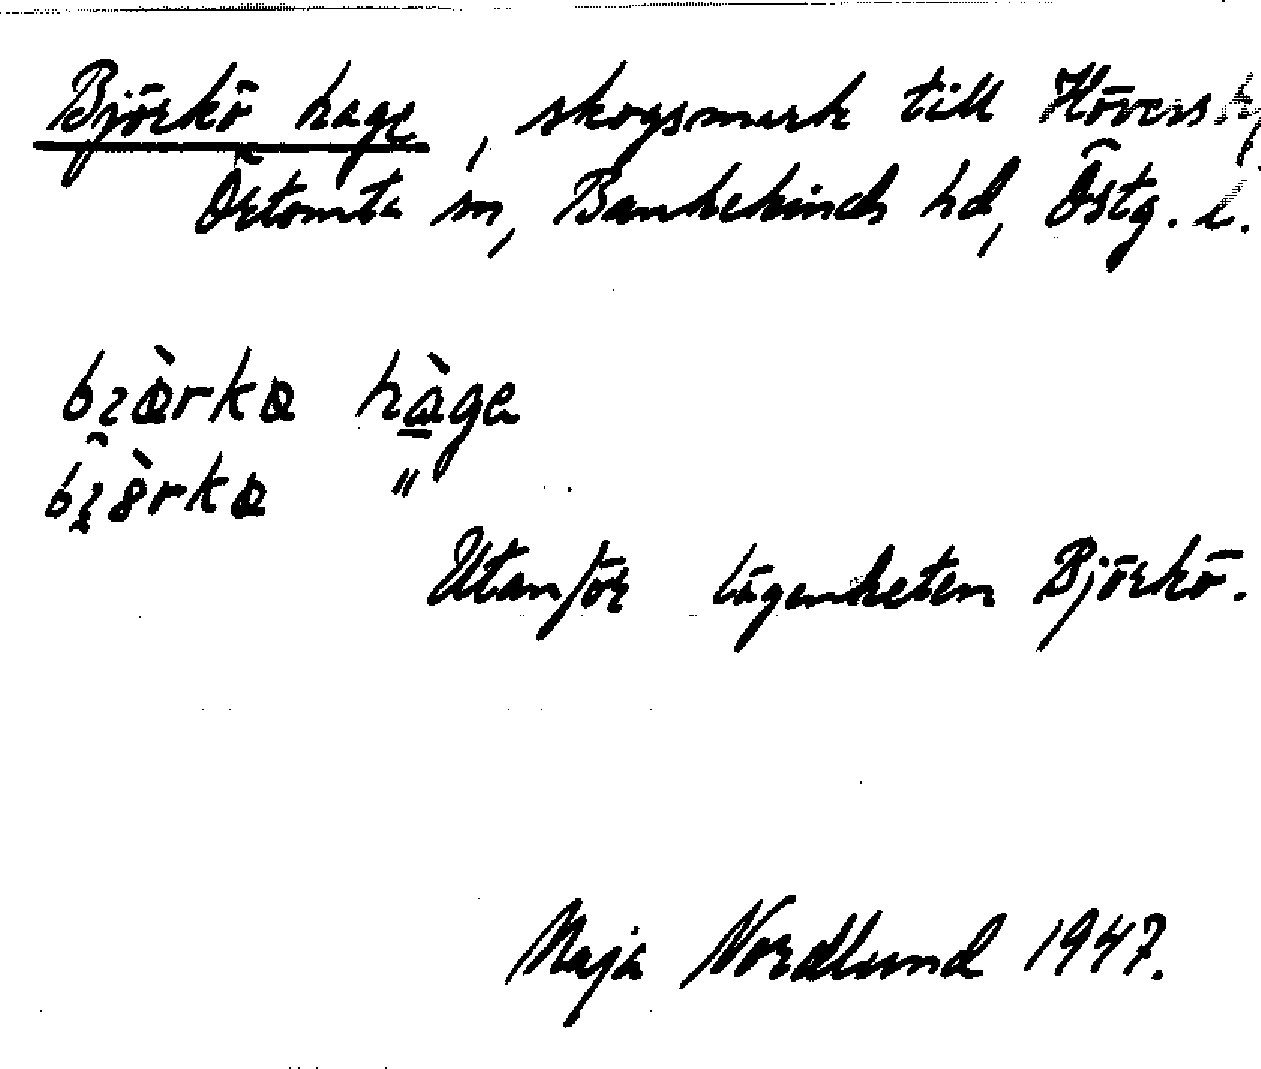 Björkö hage, skogsmark till Hövers
Örtomta sn, Bankekinds hd, Östg. l.
hage
"
Utanför lägenheten Björkö.
Maja Nordlund 1947.